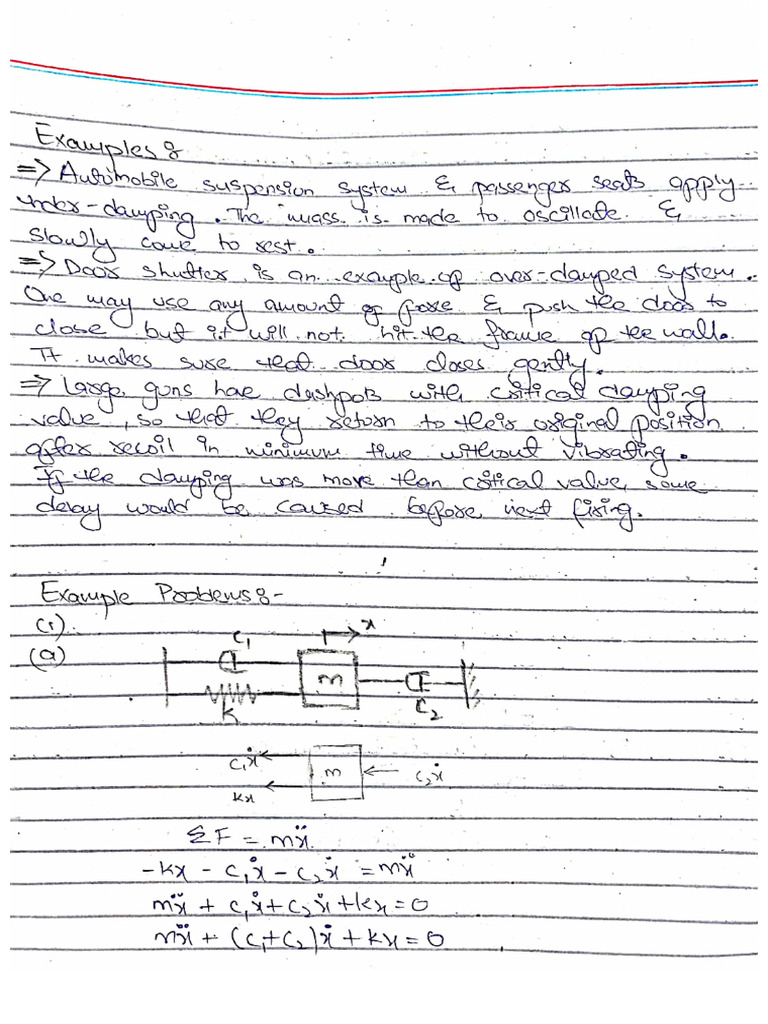 Examples :
=> Automobile suspension system & passenger seats apply
under-damping. The mass is made to oscillate &
slowly come to rest.
=> Door shutter is an example of over-damped system.
One may use any amount of force & push the door to
close but it will not hit the frame of the wall.
It makes sure that door closes gently.
=> Large guns have dashpots with critical damping
value, so that they return to their original position
after recoil in minimum time without vibrating.
If the damping was more than critical value, some
delay would be caused before next firing.
Example Problems :-
(1).
(a)
C₁
x
m
K
C₂
c₁ẋ
m
c₂ẋ
kx
ΣF = mẍ
-kx - c₁ẋ - c₂ẋ = mẍ
mẍ + c₁ẋ + c₂ẋ + kx = 0
mẍ + (c₁+c₂)ẋ + kx = 0